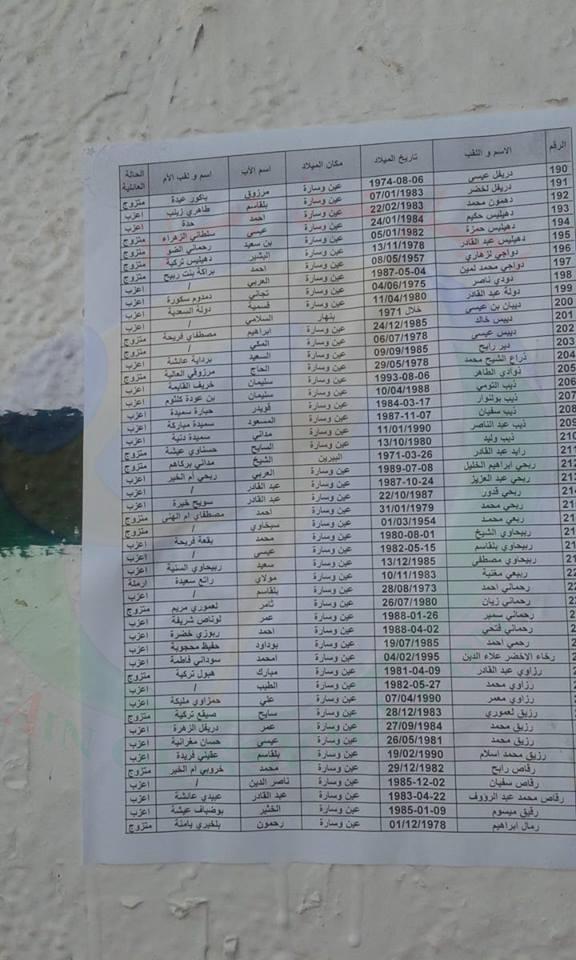 الرقم الاسم و اللقب تاريخ الميلاد مكان الميلاد اسم الأب اسم و لقب الأم الحالة العائلية
190 دريفل عيسى 1974-08-06 عين وسارة مرزوق باكور عيدة متزوج
191 دريفل لخضر 07/01/1983 عين وسارة بلقاسم طاهري زينب اعزب
192 دهمون محمد 22/02/1983 عين وسارة احمد حدة متزوج
193 دهيليس حكيم 24/01/1984 عين وسارة عيسى سلطاني الزهراء اعزب
194 دهيليس حمزة 05/01/1982 عين وسارة بن سعيد رحماني الضو متزوج
195 دهيليس عبد القادر 13/11/1978 عين وسارة البشير دهيليس تركية متزوج
196 دواجي لزهاري 08/05/1957 عين وسارة احمد براكة بنت ربيح متزوج
197 دواجي محمد لمين 1987-05-04 عين وسارة العربي / اعزب
198 دودي ناصر 04/06/1975 عين وسارة تجاني دمدوم سكورة اعزب
199 دولة عبد القادر 11/04/1980 عين وسارة قسمية دولة السعدية اعزب
200 ديبان بن عيسى خلال 1971 بنهار السلامي / متزوج
201 دبيس خالد 24/12/1985 عين وسارة ابراهيم مصطفاي فريحة اعزب
202 دبيس عيسى 06/07/1978 عين وسارة المكي / متزوج
203 دير رابح 09/09/1985 عين وسارة السعيد بردابة عائشة اعزب
204 ذراع الشيح محمد 29/05/1978 عين وسارة الحاج مرزوقي العالية متزوج
205 ذوادي الطاهر 1993-08-06 عين وسارة سليمان خريف القايمة اعزب
206 ذيب التومي 10/04/1988 عين وسارة سليمان بن عودة كلثوم اعزب
207 ذيب بولنوار 1984-03-17 عين وسارة قويدر حبارة سميدة اعزب
208 ذيب سفيان 1987-11-07 عين وسارة المسعود سميدة مباركة اعزب
209 ذيب عبد الناصر 11/01/1990 عين وسارة مداني سميدة دنية اعزب
21 ذيب وليد 13/10/1980 عين وسارة السايح حسناوي عيشة اعزب
21 رابد عبد القادر 1971-03-26 البيرين الشيخ مداني بركاهم متزوج
21 ربحي ابراهيم الخليل 1989-07-08 عين وسارة العربي ربحي أم الخير اعزب
21 ربحي عبد العزيز 1987-10-24 عين وسارة عبد القادر / اعزب
21 ربحي قدور 22/10/1987 عين وسارة عبد القادر سويح خيرة اعزب
21 ربحي محمد 31/01/1979 عين وسارة احمد مصطفاي ام الهنى متزوج
21 ربعي محمد 01/03/1954 عين وسارة سبخاوي / متزوج
21 ربيحاوي الشيخ 1980-08-01 عين وسارة محمد بقعة فريحة اعزب
21 ربيحاوي بلقاسم 1982-05-15 عين وسارة عيسى / اعزب
21 ربيحاوي مصطفى 13/12/1985 عين وسارة سعيد ربيحاوي السنية اعزب
2 ربيعي مغنية 10/11/1983 عين وسارة مولاي رابع سعيدة ارملة
2 رحماني احمد 28/08/1973 عين وسارة بلقاسم / اعزب
2 رحماني زيان 26/07/1980 عين وسارة ثامر لعموري مريم متزوج
2 رحماني سمير 1988-01-26 عين وسارة عمر لوناص شريفة اعزب
2 رحماني فتحي 1988-04-02 عين وسارة احمد ربوزي خضرة اعزب
2 رحمي احمد 19/07/1985 عين وسارة بوداود حفيظ محجوبة اعزب
2 رخاء الاخضر علاء الدين 04/02/1995 عين وسارة امحمد سوداني فاطمة اعزب
رزاوي عبد القادر 1981-04-09 عين وسارة مبارك هبول تركية متزوج
رزاوي محمد 1982-05-27 عين وسارة الطيب / اعزب
رزاوي معمر 07/04/1990 عين وسارة علي حمزاوي مليكة اعزب
رزيق لعموري 28/12/1983 عين وسارة سايح صيفع تركية متزوج
رزيق محمد 27/09/1984 عين وسارة عمر دريفل الزهرة اعزب
رزيق محمد 26/05/1981 عين وسارة عيسى حسان مغرانية اعزب
رزيق محمد اسلام 19/02/1990 عين وسارة بلقاسم عقيني فريدة اعزب
رقاص رابح 29/12/1982 عين وسارة محمد خروبي ام الخير متزوج
رقاص سفيان 1985-12-02 عين وسارة ناصر الدين / اعزب
رقاص محمد عبد الرؤوف 1983-04-22 عين وسارة عبد القادر عبيدي عائشة اعزب
رفيق ميسوم 1985-01-09 عين وسارة الخثير بوضياف عيشة اعزب
رمال ابراهيم 01/12/1978 عين وسارة رحمون بلخيري يامنة متزوج